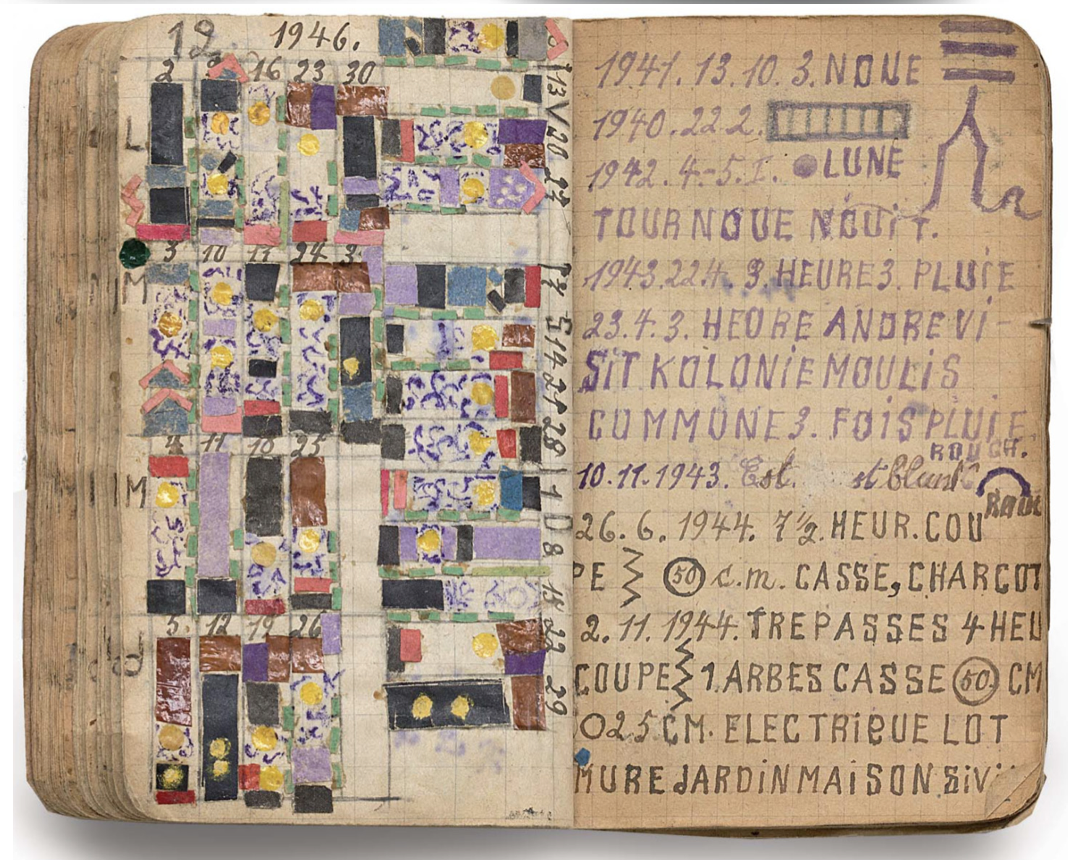 12. 1946.
2 9 16 23 30
L
3 10 17 24 31
M
4 11 18 25
M
5 12 19 26
J
13 V 20 27
S 7 14 21 28
1 D 8 15 22 29
1941. 13. 10. 3. NOUE
1940. 22. 2.
1942. 4.-5. I. LUNE
TOURNOUE NOUIT.
1943. 22.4. 3. HEURE 3. PLUIE
23.4. 3. HEORE ANDRE VI-
SIT KOLONIE MOULIS
COMMONE 3. FOIS PLUIE
ROUGH.
10. 11. 1943. Est.
26. 6. 1944. 7 ½. HEUR. COU
PE 50 c.m. CASSE, CHARCOT
2. 11. 1944. TREPASSES 4 HEU
COUPE 1. ARBES CASSE 50 CM
025 CM. ELECTRIQUE LOT
MURE JARDIN MAISON. SIVI